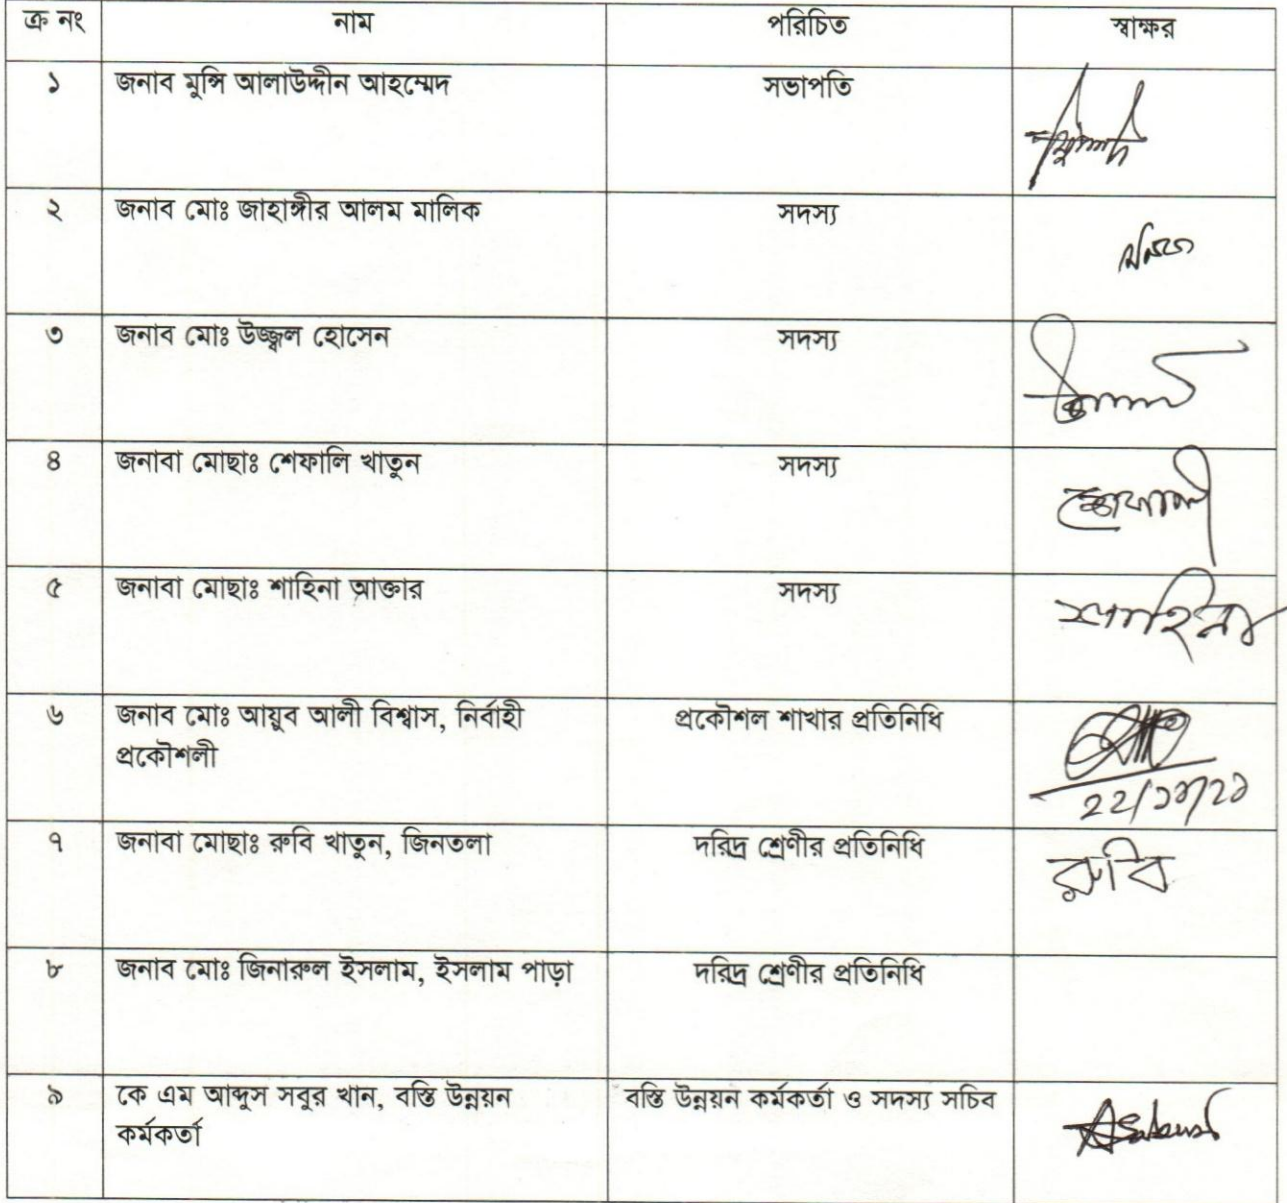 ক্র নং নাম পরিচিত স্বাক্ষর
১ জনাব মুন্সি আলাউদ্দীন আহম্মেদ সভাপতি
২ জনাব মোঃ জাহাঙ্গীর আলম মালিক সদস্য
৩ জনাব মোঃ উজ্জ্বল হোসেন সদস্য
৪ জনাবা মোছাঃ শেফালি খাতুন সদস্য
শেফালী
৫ জনাবা মোছাঃ শাহিনা আক্তার সদস্য
শাহিনা
৬ জনাব মোঃ আয়ুব আলী বিশ্বাস, নির্বাহী প্রকৌশল শাখার প্রতিনিধি
প্রকৌশলী
৭ জনাবা মোছাঃ রুবি খাতুন, জিনতলা দরিদ্র শ্রেণীর প্রতিনিধি
রুবি
৮ জনাব মোঃ জিনারুল ইসলাম, ইসলাম পাড়া দরিদ্র শ্রেণীর প্রতিনিধি
৯ কে এম আব্দুস সবুর খান, বস্তি উন্নয়ন বস্তি উন্নয়ন কর্মকর্তা ও সদস্য সচিব
কর্মকর্তা